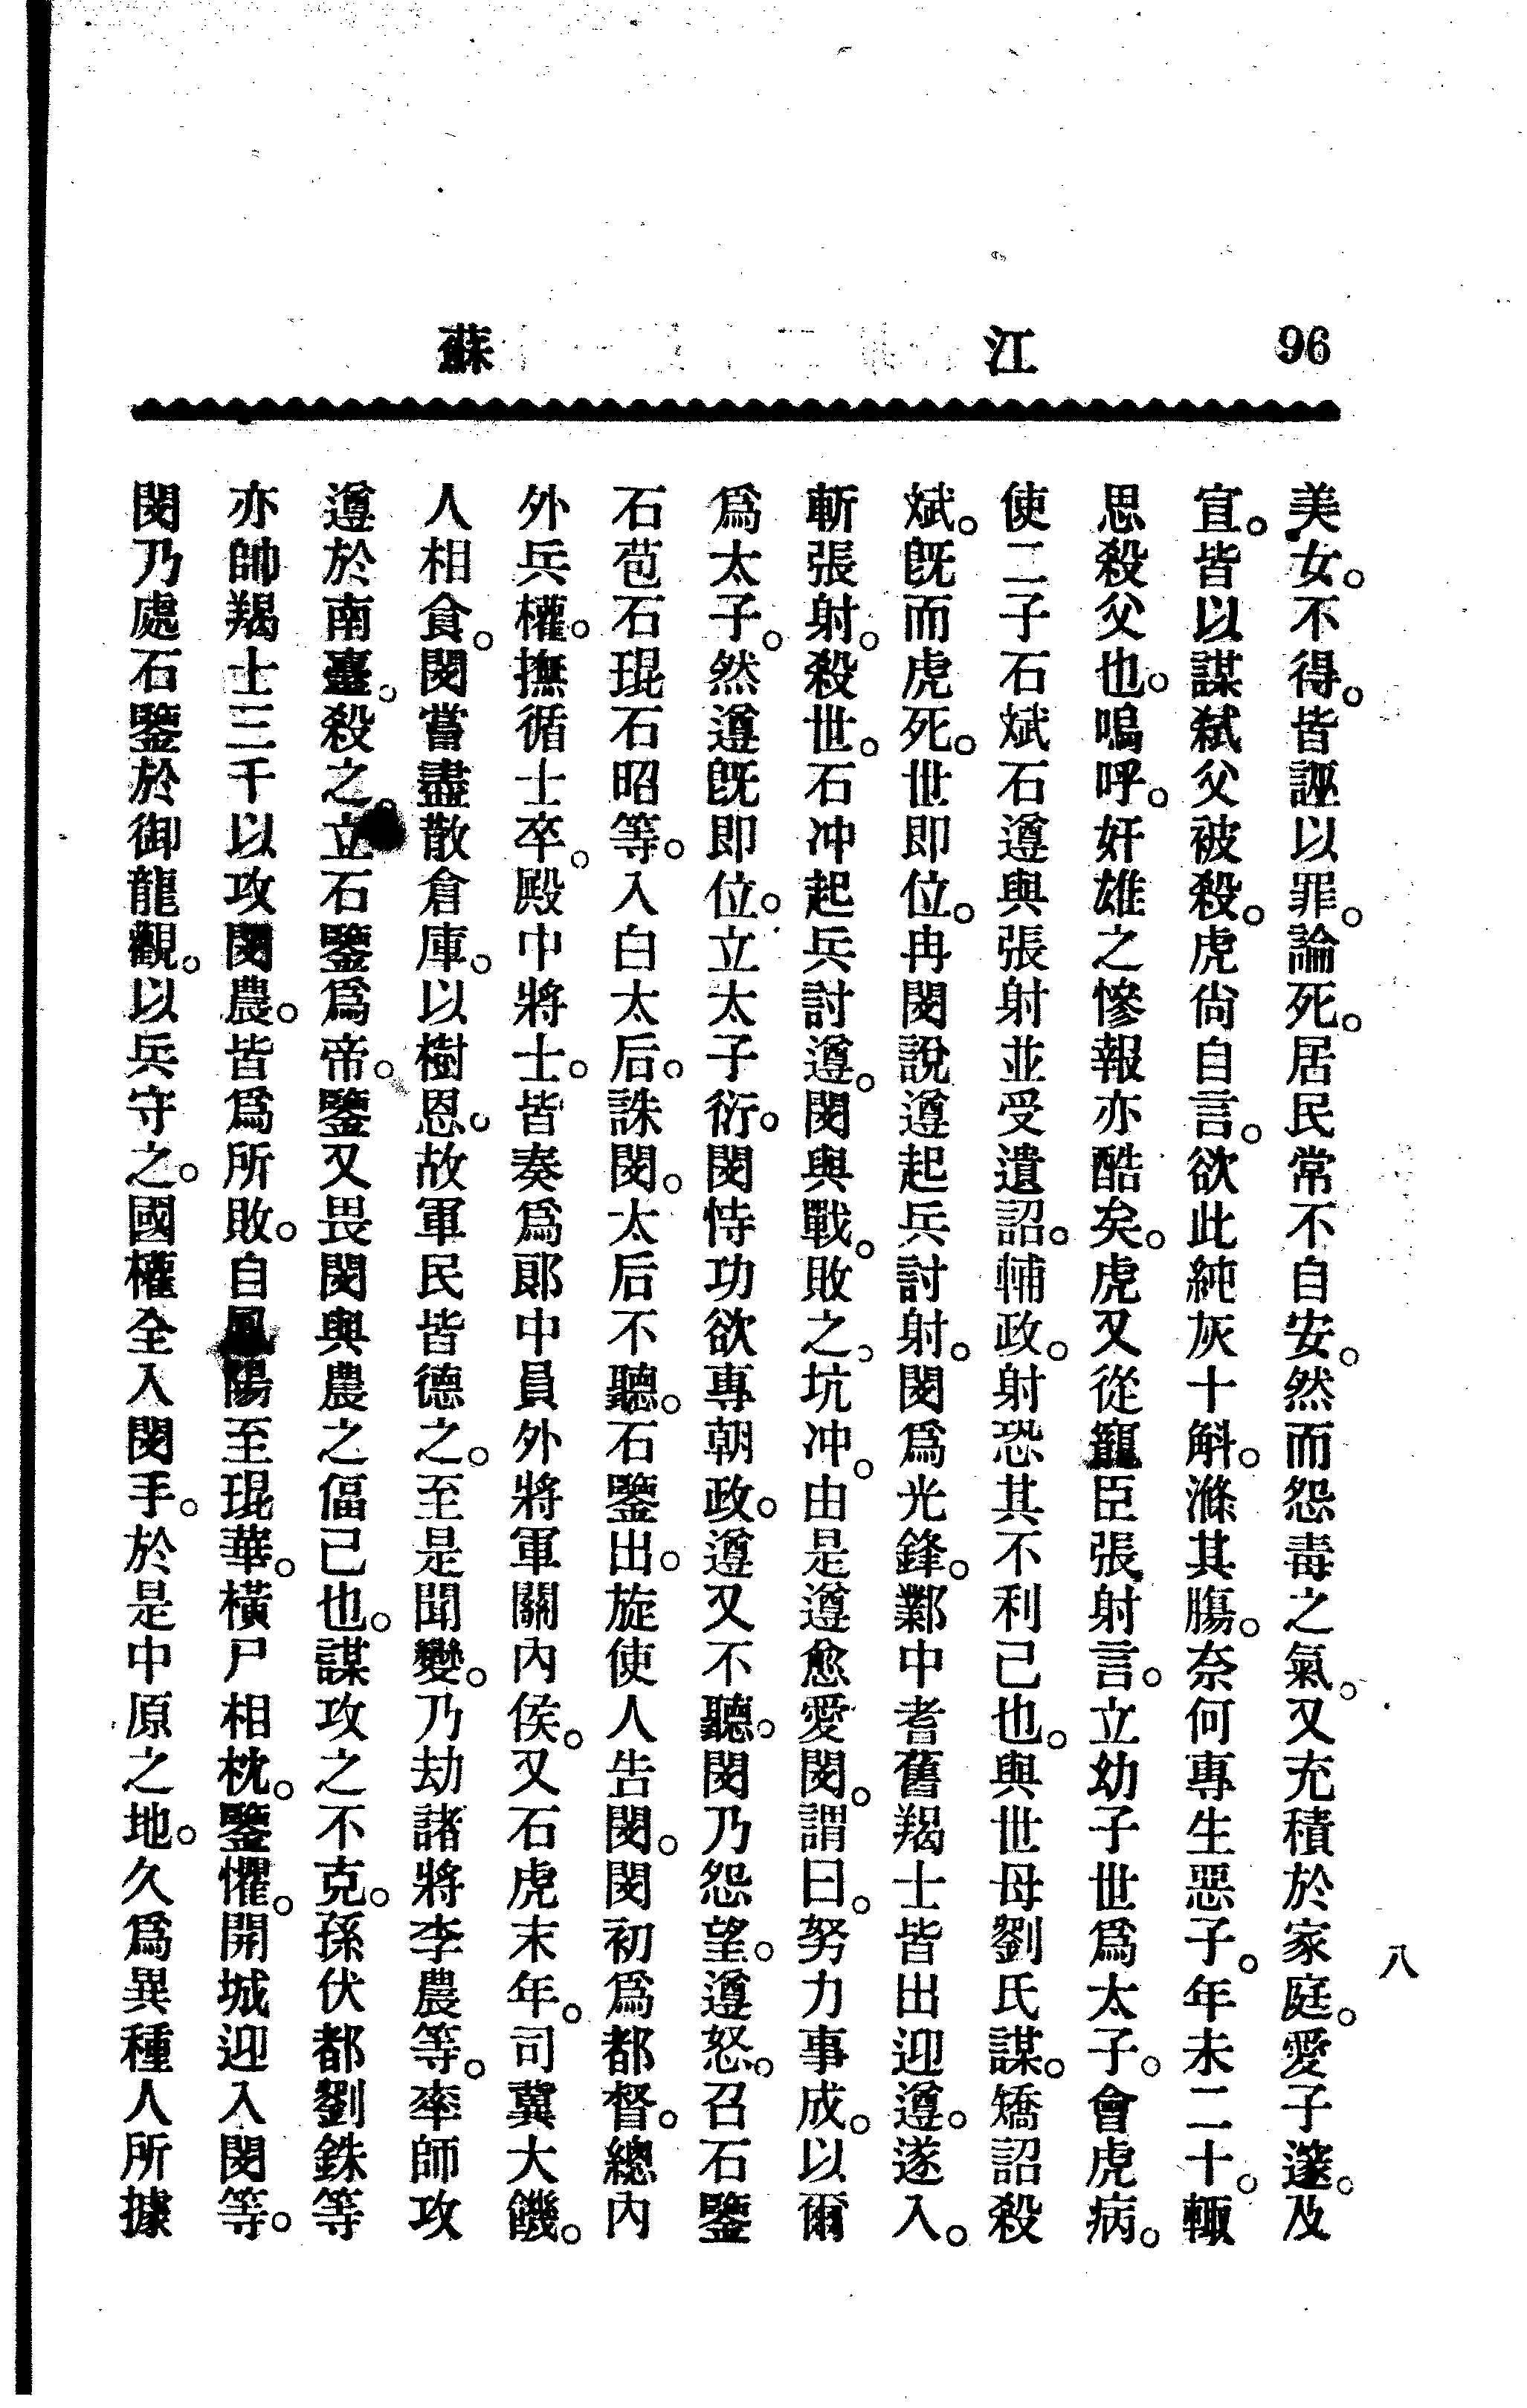 96
江蘇
八
美女。不得。皆誣以罪。論死。居民常不自安。然而怨毒之氣。又充積於家庭。愛子邃。及
宣。皆以謀弒父被殺。虎尙自言。欲此純灰十斛。滌其膓。奈何專生惡子。年未二十。輒
思殺父也。嗚呼。奸雄之慘報亦酷矣。虎又從寵臣張射言。立幼子世爲太子。會虎病。
使二子石斌石遵與張射並受遺詔。輔政。射恐其不利己也。與世母劉氏謀。矯詔殺
斌。旣而虎死。世即位。冉閔說遵起兵討射。閔爲光鋒。鄴中耆舊羯士皆出迎遵。遂入。
斬張射。殺世。石冲起兵討遵。閔與戰。敗之。坑冲。由是遵愈愛閔。謂曰。努力事成。以爾
爲太子。然遵旣即位。立太子衍。閔恃功欲專朝政。遵又不聽。閔乃怨望。遵怒。召石鑒
石苞石琨石昭等。入白太后。誅閔。太后不聽。石鑒出。旋使人告閔。閔初爲都督。總內
外兵權。撫循士卒。殿中將士。皆奏爲郞中員外將軍關內侯。又石虎末年。司冀大饑。
人相食。閔嘗盡散倉庫。以樹恩。故軍民皆德之。至是聞變。乃劫諸將李農等。率師攻
遵於南臺。殺之。立石鑒爲帝。鑒又畏閔與農之偪己也。謀攻之不克。孫伏都劉銖等
亦帥羯士三千以攻閔農。皆爲所敗。自鳳陽至琨華。橫尸相枕。鑒懼。開城迎入閔等。
閔乃處石鑒於御龍觀。以兵守之。國權全入閔手。於是中原之地。久爲異種人所據